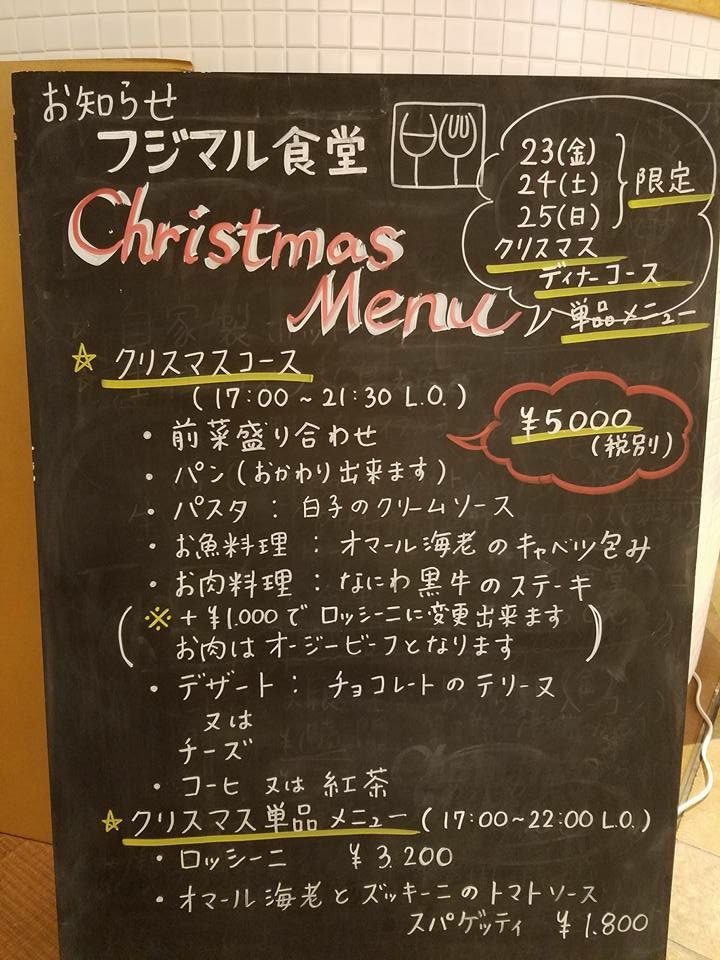 お知らせ
フジマル食堂
Christmas
Menu
23(金)
24(土)
25(日)
限定
クリスマス
ディナーコース
単品メニュー
☆ クリスマスコース
(17:00~21:30 L.O.)
¥5.000
(税別)
・前菜盛り合わせ
・パン(おかわり出来ます)
・パスタ：白子のクリームソース
・お魚料理：オマール海老のキャベツ包み
・お肉料理：なにわ黒牛のステーキ
(※+¥1.000でロッシーニに変更出来ます
お肉はオージービーフとなります)
・デザート：チョコレートのテリーヌ
又は
チーズ
・コーヒ 又は 紅茶
☆クリスマス単品メニュー(17:00~22:00 L.O.)
・ロッシーニ ¥3.200
・オマール海老とズッキーニのトマトソース
スパゲッティ ¥1.800